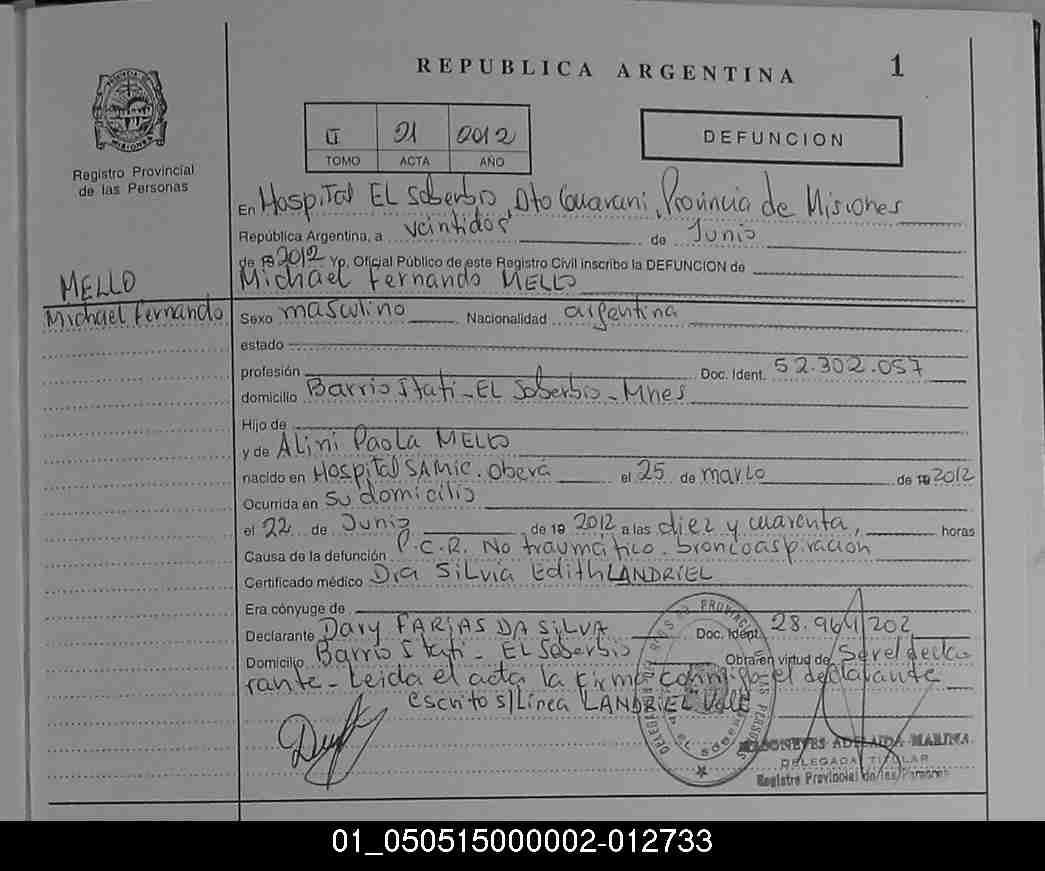 REPUBLICA ARGENTINA
1
PROVINCIA DE MISIONES
Registro Provincial
de las Personas
II 01 2012
TOMO ACTA AÑO
DEFUNCION
En Hospital EL Soberbio, Dto Guarani, Provincia de Misiones
República Argentina, a veintidos de Junio
de 19 2012 Yo, Oficial Público de este Registro Civil inscribo la DEFUNCION de
Michael Fernando MELLO
MELLO
Michael Fernando
Sexo masculino Nacionalidad argentina
estado
profesión Doc. Ident. 52.302.057
domicilio Barrio Itati - EL Soberbio - Mnes
Hijo de
y de Alini Paola MELLO
nacido en Hospital SAMIC. Oberá el 25 de marzo de 19 2012
Ocurrida en Su domicilio
el 22 de Junio de 19 2012 a las diez y cuarenta, horas
Causa de la defunción P.C.R. No traumático. broncoaspiración
Certificado médico Dra Silvia Edith LANDRIEL
Era cónyuge de
Declarante Dary FARIAS DA SILVA Doc. Ident. 28.964.202
Domicilio Barrio Itati - EL Soberbio Obra en virtud de Ser el decla
rante - Leida el acta la firma conmigo el declarante
escrito s/Linea LANDRIEL Vale
ADELAIDA MARINA
DELEGADA TITULAR
Registro Provincial de las Personas
01_050515000002-012733